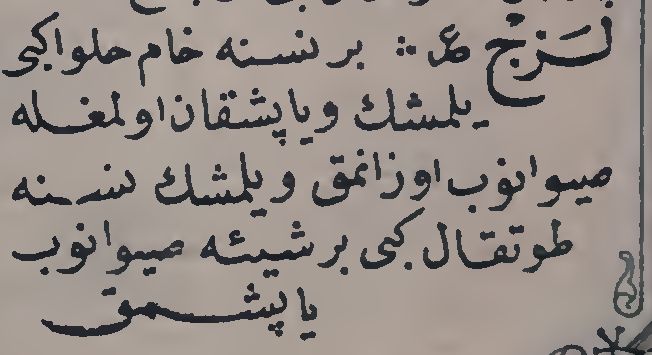 لَسَزِّجْ ع : بر نسنه خام حلوا کبی
یلمشك ویاپشقان اولمغله
صیوانوب اوزانمق ویلمشك نسنه
طوتقال کبی بر شیئه صیوانوب
یاپشمق